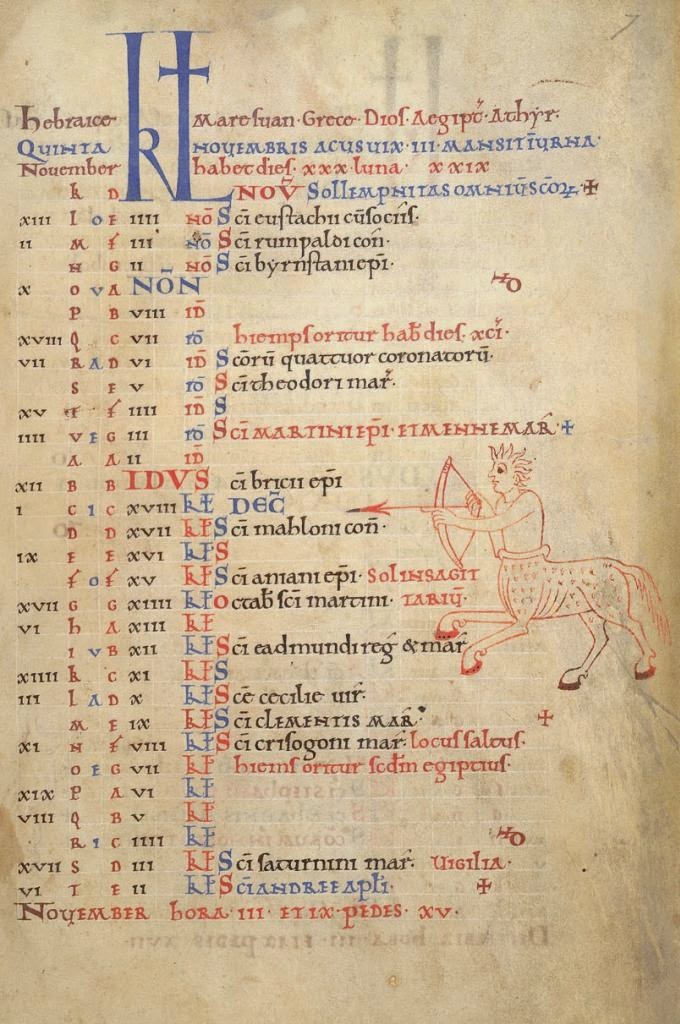 7
KL
hebraice Maresuan · Grece · Dios · Aegipt̄ · Athyr ·
QUINTA NOUEMBRIS ACUS UIX · III · MANSIT IN URNA ·
November habet dies · xxx luna · xxix
k D NOV̄ SOLLEMPNITAS OMNIŪ SC̄OR +
xiii l o E iiii nō S c̄i eustachii cū sociis ·
ii m f iii nō S c̄i rumpaldi con̄ ·
n G ii nō S c̄i byrnstani ep̄i ·
x o v A NŌN
p B viii id̄
xviii q c vii id̄ hiemps oritur hab̄ dies · xci ·
vii R A D vi id̄ S c̄orū quattuor coronatorū ·
s E v id̄ S c̄i theodori mar̄ ·
xv t f iiii id̄ S
iiii v E G iii id̄ S c̄i MARTINI EP̄I · ET MENNE MAR̄ +
A A ii id̄
xii B B IDVS c̄i bricii ep̄i
i c i c xviii kł DEC̄
D D xvii kł S c̄i mahloni con̄ ·
ix E E xvi kł S
f o f xv kł S c̄i aniani ep̄i · SOL IN SAGIT
xvii G G xiiii kł Octab̄ sc̄i martini · TARIŪ ·
vi h A xiii kł
i v B xii kł S c̄i eadmundi reḡ & mar̄
xiiii k c xi kł S
iii l A D x kł S c̄e cecilie uir̄ ·
m E ix kł S c̄i CLEMENTIS MAR̄ · +
xi n f viii kł S c̄i crisogoni mar̄ · locus saltus ·
o E G vii kł hiems oritur sc̄dm egiptius ·
xix p A vi kł
viii q B v kł
R i c iiii kł
xvii s D iii kł S c̄i saturnini mar̄ · UIGILIA ·
vi T E ii kł S c̄i ANDREE AP̄LI · +
NOVEMBER hora · iii · ET ix · PEDES · xv ·